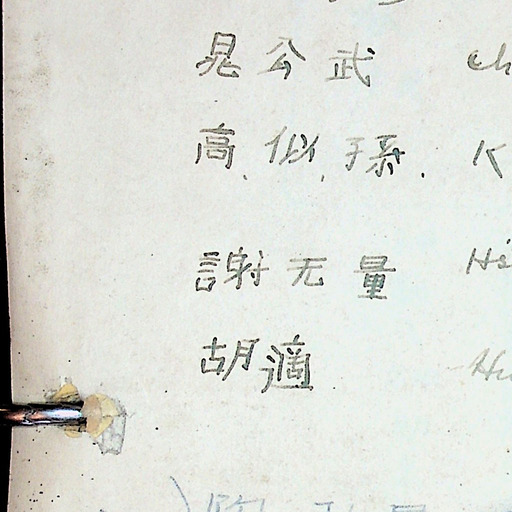 晁公武 ch
高似孫. K
謝无量 Hs
胡適 Hu